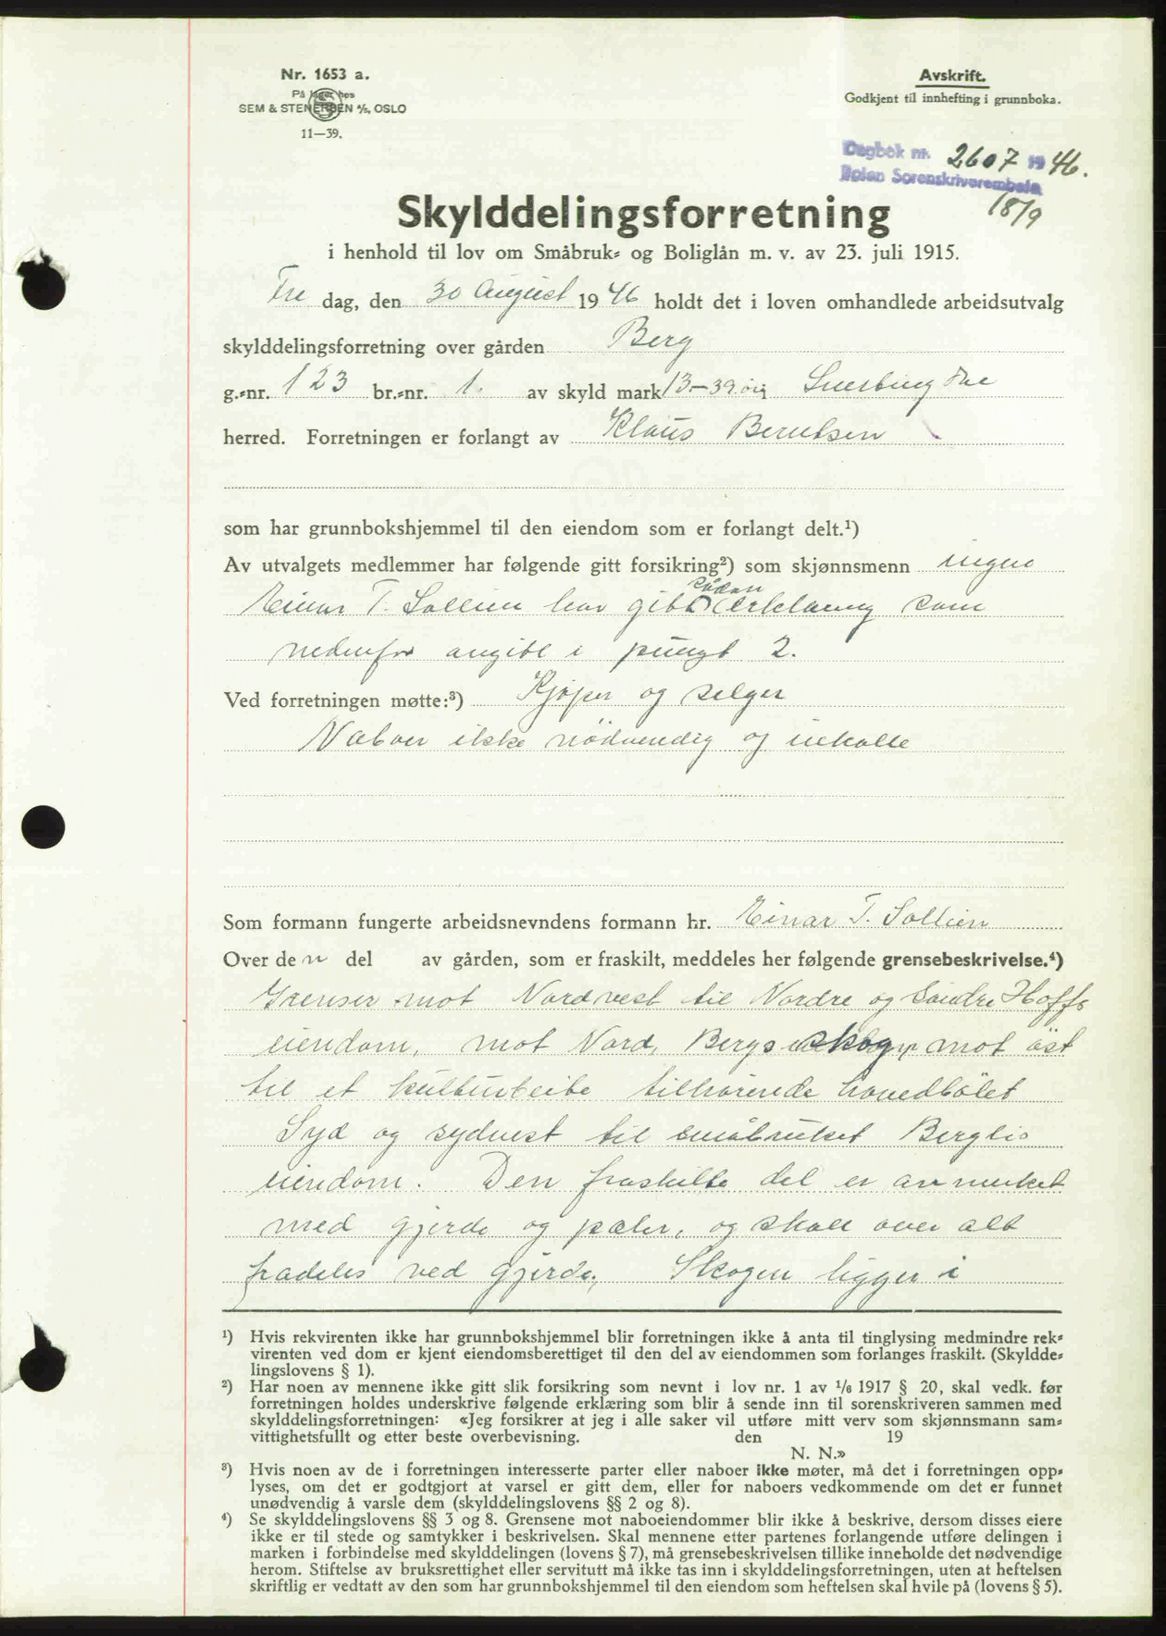 Nr. 1653 a.
På lager hos
SEM & STENERSEN A/S, OSLO
11—39.
Avskrift.
Godkjent til innhefting i grunnboka.
Dagbok nr. 2607 1946.
Sorenskriverembete
18/9
Skylddelingsforretning
i henhold til lov om Småbruk- og Boliglån m. v. av 23. juli 1915.
Fre dag, den 30 August 1946 holdt det i loven omhandlede arbeidsutvalg
skylddelingsforretning over gården Berg
g.-nr. 123 br.-nr. 1. av skyld mark 13-39 øre
herred. Forretningen er forlangt av Klaus Berntsen
som har grunnbokshjemmel til den eiendom som er forlangt delt.¹)
Av utvalgets medlemmer har følgende gitt forsikring²) som skjønnsmenn ingen
Einar T. Sollien har gitt sådan erklæring som
nedenfor angitt i pungt 2.
Ved forretningen møtte:³) Kjøper og selger
Naboer ikke nödvendig og innkalle
Som formann fungerte arbeidsnevndens formann hr. Einar T. Sollien
Over den del av gården, som er fraskilt, meddeles her følgende grensebeskrivelse.⁴)
Grenser mot Nordvest til Nordre og Söndre Hoffs
eiendom, mot Nord, Bergs skog, mot öst
til et kulturbeite tilhörende hovedbölet
Syd og sydvest til småbruket Berglis
eiendom. Den fraskilte del er avmerket
med gjerde og pæler, og skall over alt
fradeles ved gjerde. Skogen ligger i
¹) Hvis rekvirenten ikke har grunnbokshjemmel blir forretningen ikke å anta til tinglysing medmindre rek-
virenten ved dom er kjent eiendomsberettiget til den del av eiendommen som forlanges fraskilt. (Skyldde-
lingslovens § 1).
²) Har noen av mennene ikke gitt slik forsikring som nevnt i lov nr. 1 av 1/6 1917 § 20, skal vedk. før
forretningen holdes underskrive følgende erklæring som blir å sende inn til sorenskriveren sammen med
skylddelingsforretningen: «Jeg forsikrer at jeg i alle saker vil utføre mitt verv som skjønnsmann sam-
vittighetsfullt og etter beste overbevisning. den 19
N. N.»
³) Hvis noen av de i forretningen interesserte parter eller naboer ikke møter, må det i forretningen opp-
lyses, om det er godtgjort at varsel er gitt dem, eller for naboers vedkommende om det er funnet
unødvendig å varsle dem (skylddelingslovens §§ 2 og 8).
⁴) Se skylddelingslovens §§ 3 og 8. Grensene mot naboeiendommer blir ikke å beskrive, dersom disses eiere
ikke er til stede og samtykker i beskrivelsen. Skal mennene etter partenes forlangende utføre delingen i
marken i forbindelse med skylddelingen (lovens § 7), må grensebeskrivelsen tillike inneholde det nødvendige
herom. Stiftelse av bruksrettighet eller servitutt må ikke tas inn i skylddelingsforretningen, uten at heftelsen
skriftlig er vedtatt av den som har grunnbokshjemmel til den eiendom som heftelsen skal hvile på (lovens § 5).